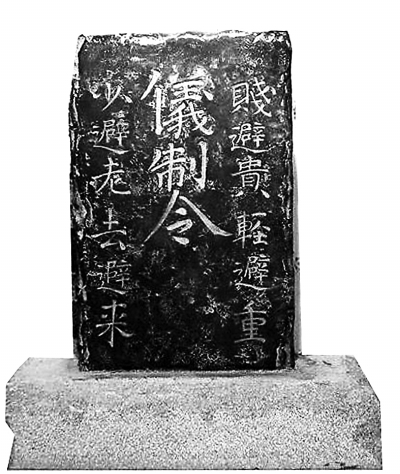 賤避貴軽避重
儀制令
少避老去避来